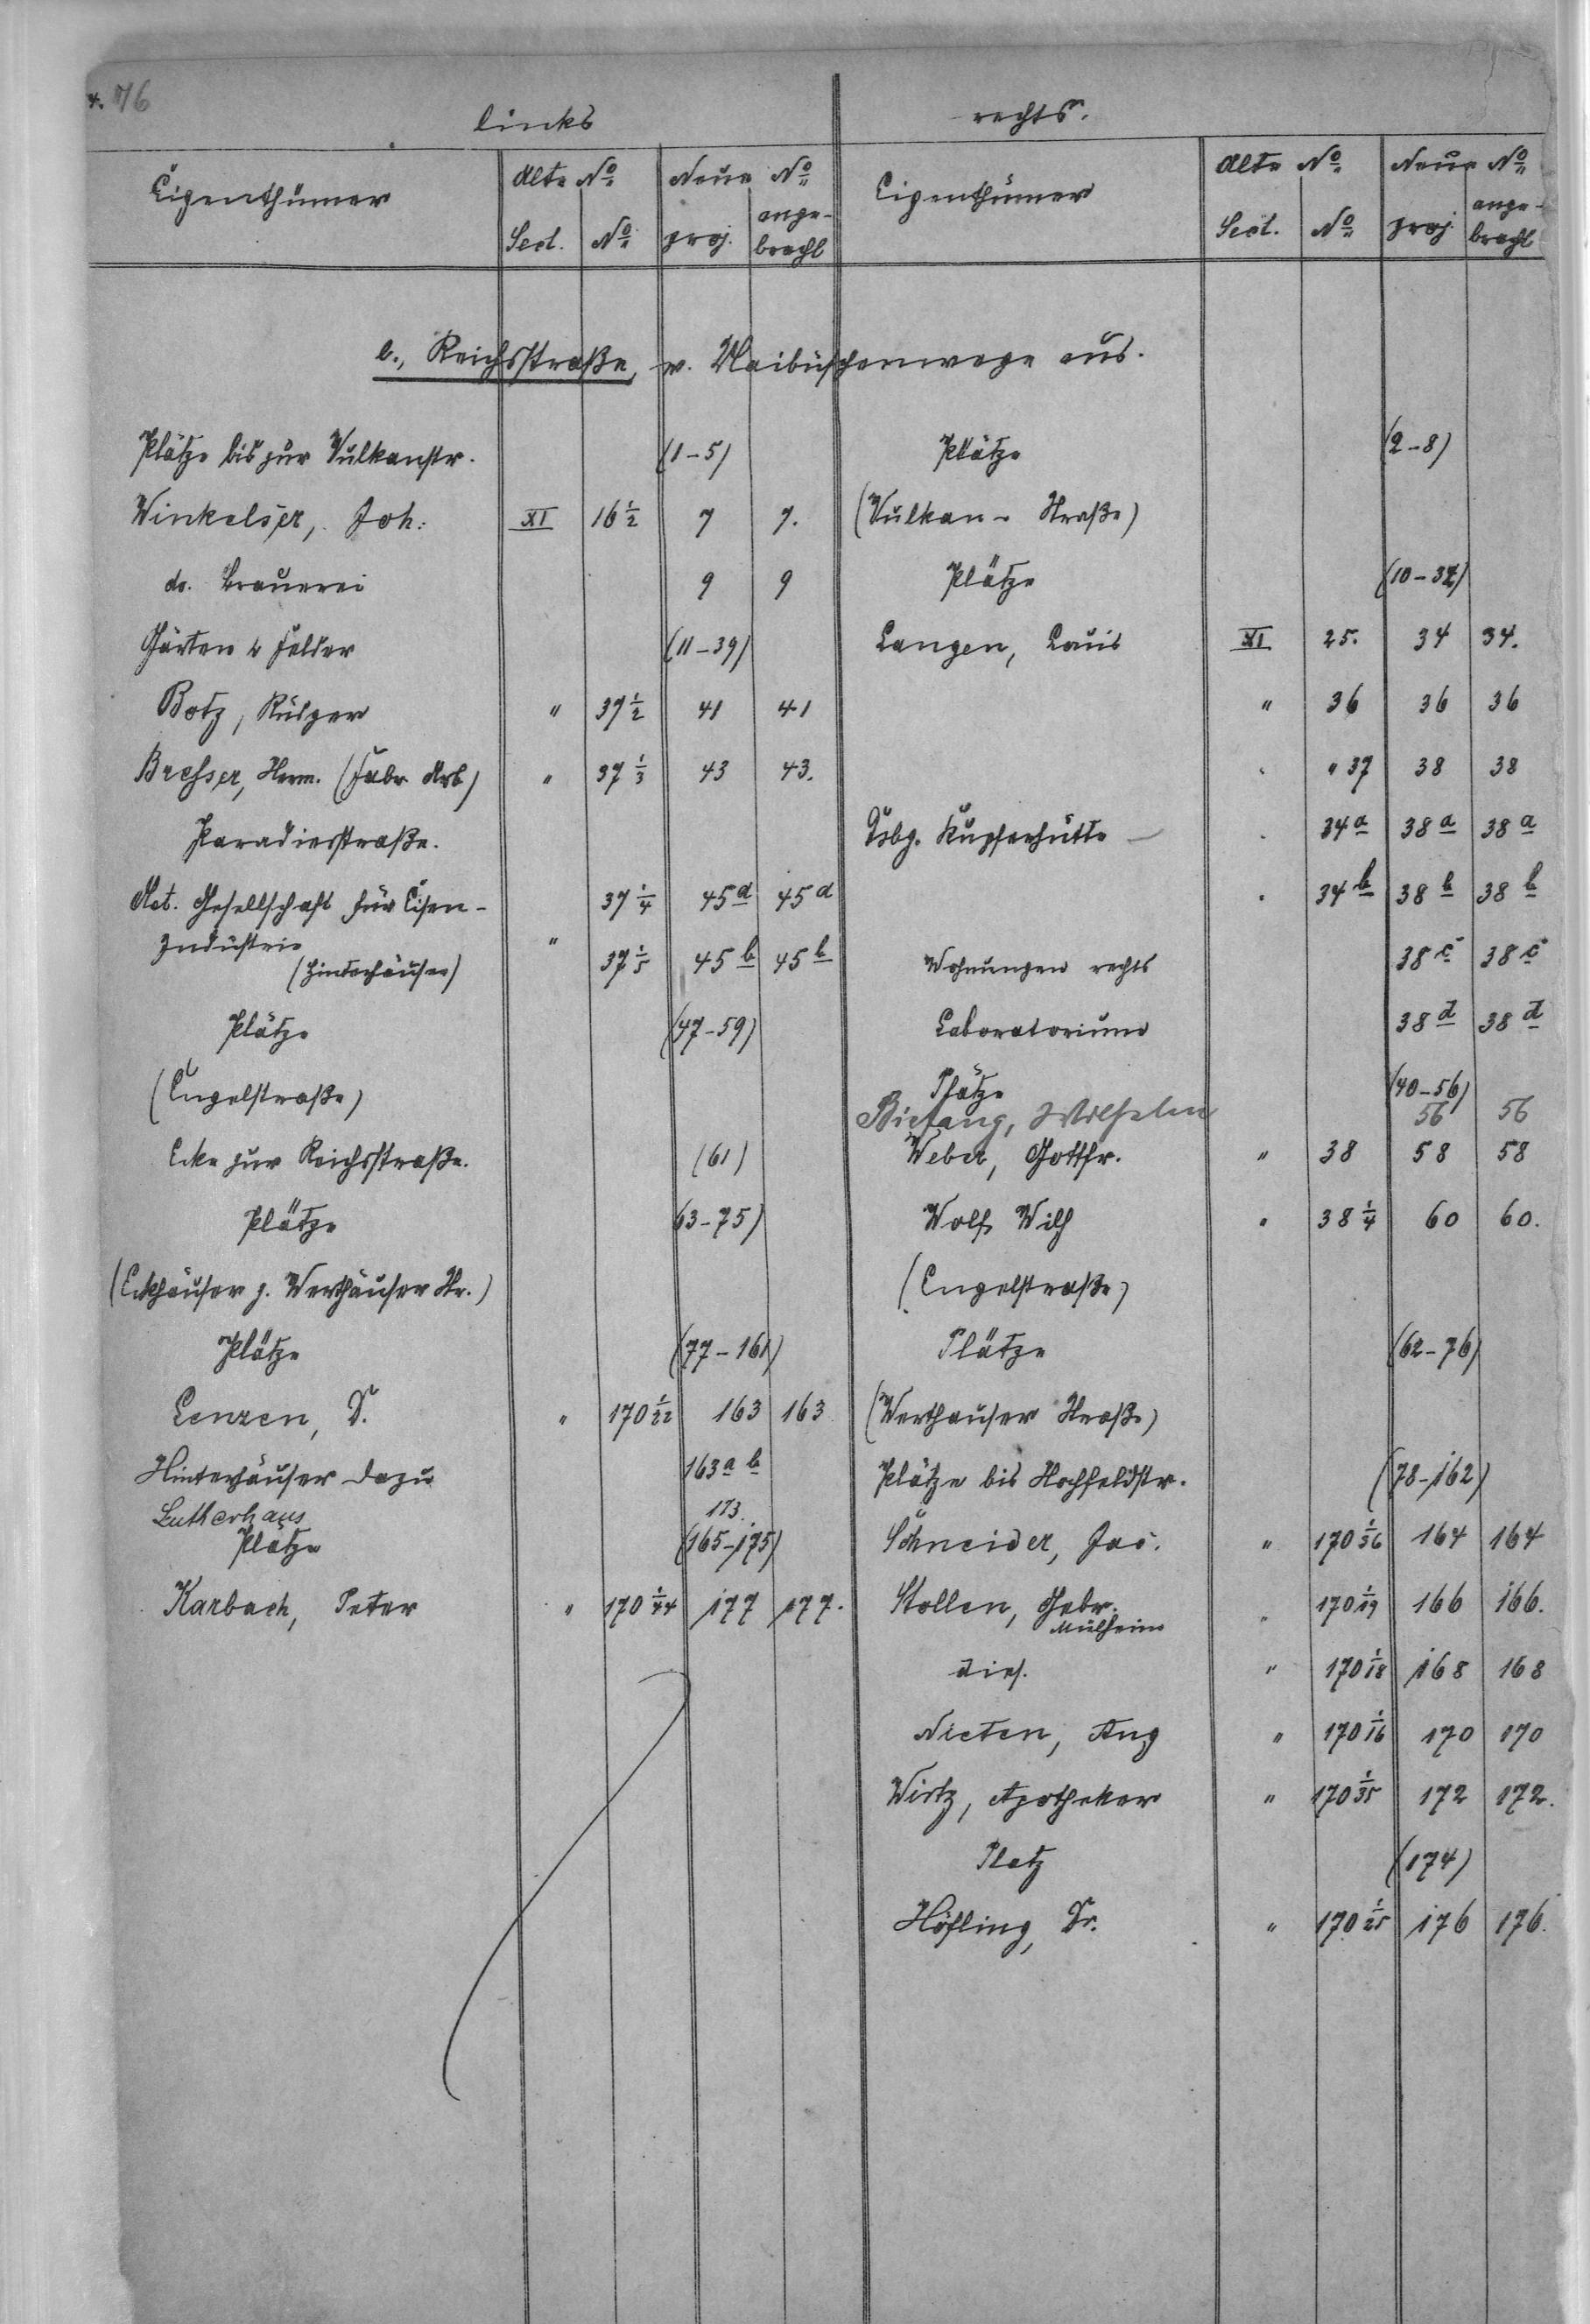 4. 76
links
rechts.
Eigenthümer
Alte No.
Neue No
Sect. No. proj. ange-
bracht
Eigenthümer
Alte No.
Neue No
Sect. No proj. ange-
bracht
b., Reichsstraße, v. Maibüschenwege aus.
Plätze bis zur Vulkanstr. (1-5)
Plätze (2-8)
Winkelser, Joh: XI 16 1/2 7 7.
(Vulkan- Straße)
do. Brauerei 9 9
Plätze (10-32)
Gärten u Felder (11-39)
Langen, Louis XI 25. 34 34.
Botz, Rütger " 37 1/2 41 41
" 36 36 36
Bresser, Herm. (Fabr Arb) " 37 1/3 43 43.
" 37 38 38
Paradiesstraße.
Dsbg. Kupferhütte — 34a 38a 38a
Act. Gesellschaft für Eisen- 37 1/4 45a 45a
34b 38b 38b
Industrie "
(Hinterhäuser) 37 1/5 45b 45b
Wohnungen rechts 38c 38c
Plätze (47-59)
Laboratorium 38d 38d
(Engelstraße)
Plätze (40-56)
Biefang, Wilhelm 56 56
Ecke zur Reichsstraße. (61)
Weber, Gottfr. " 38 58 58
Plätze 63-75)
Wolf, Wilh " 38 1/4 60 60.
(Eckhäuser z. Werthauser Str.)
(Engelstraße)
Plätze (77-161)
Plätze (62-76)
Lenzen, D. " 170 1/22 163 163
(Werthauser Straße)
Hinterhäuser dazu 163a b
Plätze bis Hochfeldstr. (78-162)
Lutherhaus 173.
Plätze (165-175)
Schneider, Jac. " 170 1/36 164 164
Karbach, Peter " 170 1/44 177 177.
Stollen, Gebr. " 170 1/19 166 166.
Mülheim
dies. " 170 1/18 168 168
Nieten, Aug " 170 1/16 170 170
Wirtz, Apotheker " 170 1/35 172 172.
Platz (174)
Höfling, Dr. " 170 1/25 176 176.